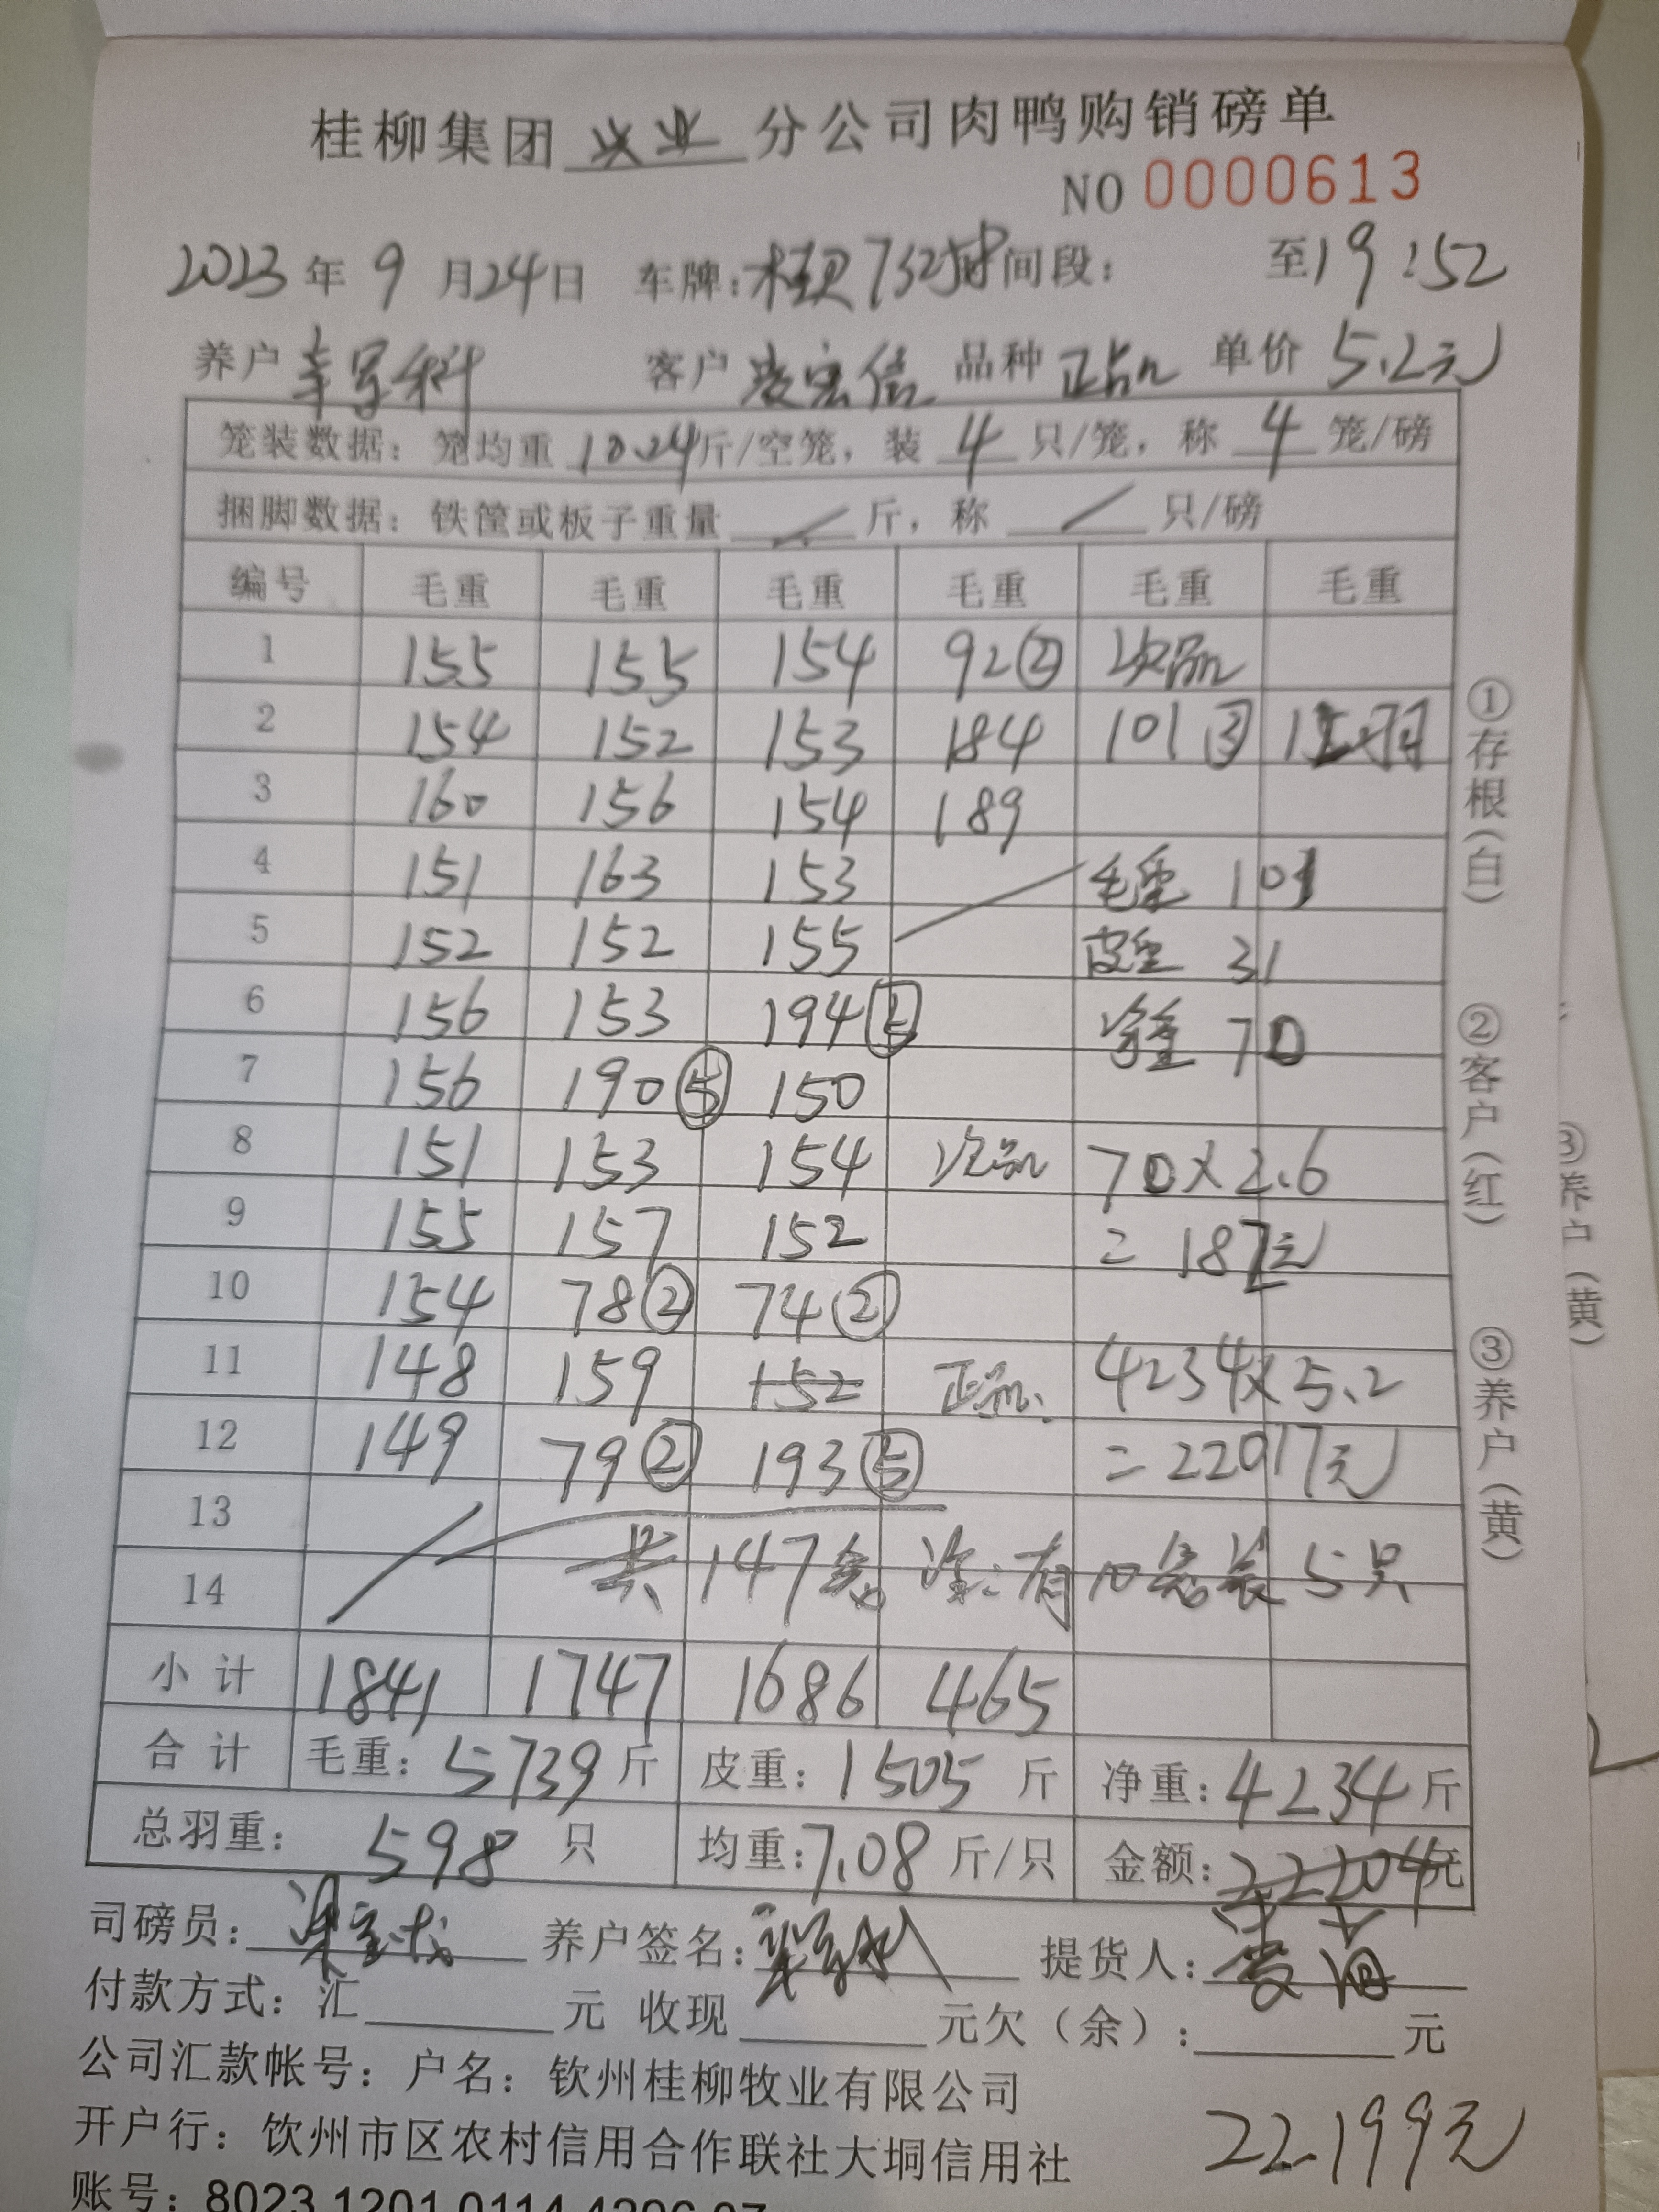 桂柳集团 兴业 分公司肉鸭购销磅单
NO 0000613
2023 年 9 月 24 日 车牌: 时间段: 至 19:52
养户 客户 凌宏信 品种 正品 单价 5.2元
笼装数据: 笼均重 10.24 斤/空笼, 装 4 只/笼, 称 4 笼/磅
捆脚数据: 铁筐或板子重量 / 斤, 称 / 只/磅
编号 毛重 毛重 毛重 毛重 毛重 毛重
1 155 155 154 92② 次品
2 154 152 153 184 101③
3 160 156 154 189
4 151 163 153 毛重 101
5 152 152 155 皮重 31
6 156 153 194⑤ 净重 70
7 156 190⑤ 150
8 151 153 154 次品 70×2.6
9 155 157 152 = 元
10 154 78② 74②
11 148 159 152 正品 4234×5.2
12 149 79② 193⑤ = 22017元
13
共147笼 注:有10笼装5只
14
小计 1841 1747 1686 465
合计 毛重: 5739 斤 皮重: 1505 斤 净重: 4234 斤
总羽重: 598 只 均重: 7.08 斤/只 金额: 22204元
司磅员: 养户签名: 提货人:
付款方式: 汇 元 收现 元欠(余): 元
公司汇款帐号: 户名: 钦州桂柳牧业有限公司
开户行: 钦州市区农村信用合作联社大垌信用社
22199元
账号: 8023 1201 0114
①存根(白) ②客户(红) ③养户(黄)
③养户(黄)